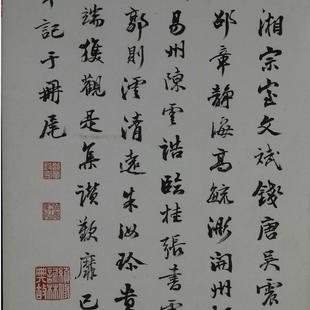 湘宗室文斌錢唐吳震
邵章靜海高毓浵開州
易州陳雲誥臨桂張書雲
郭則澐清遠朱汝珍貴
端獲觀是集讚歎靡已
記于冊尾